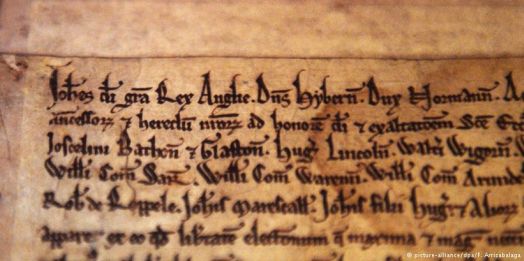 Joh̄es dī gr̄a Rex Anglie. Dn̄s Hyberñ. Dux Normann̄.
ancessorꝝ ⁊ heredum ad honorē dī ⁊ exaltatōem Sc̄e
Joscelini Bathoñ ⁊ Glastoñ. Hug̃ Lincolñ. Walti Wigorñ.
Willi Com̄ Sarr̄. Willi Com̄ Warenn̄. Willi Com̄ Arund
Rob̄ de Roppele. Joh̄is Maresc̄all. Joh̄is filii Hug̃ ⁊ Alioꝝ
appare et eo qd̄ lib̄tatem electionum q̄ maxima ⁊ mag
© picture-alliance/dpa/F. Arrizabalaga